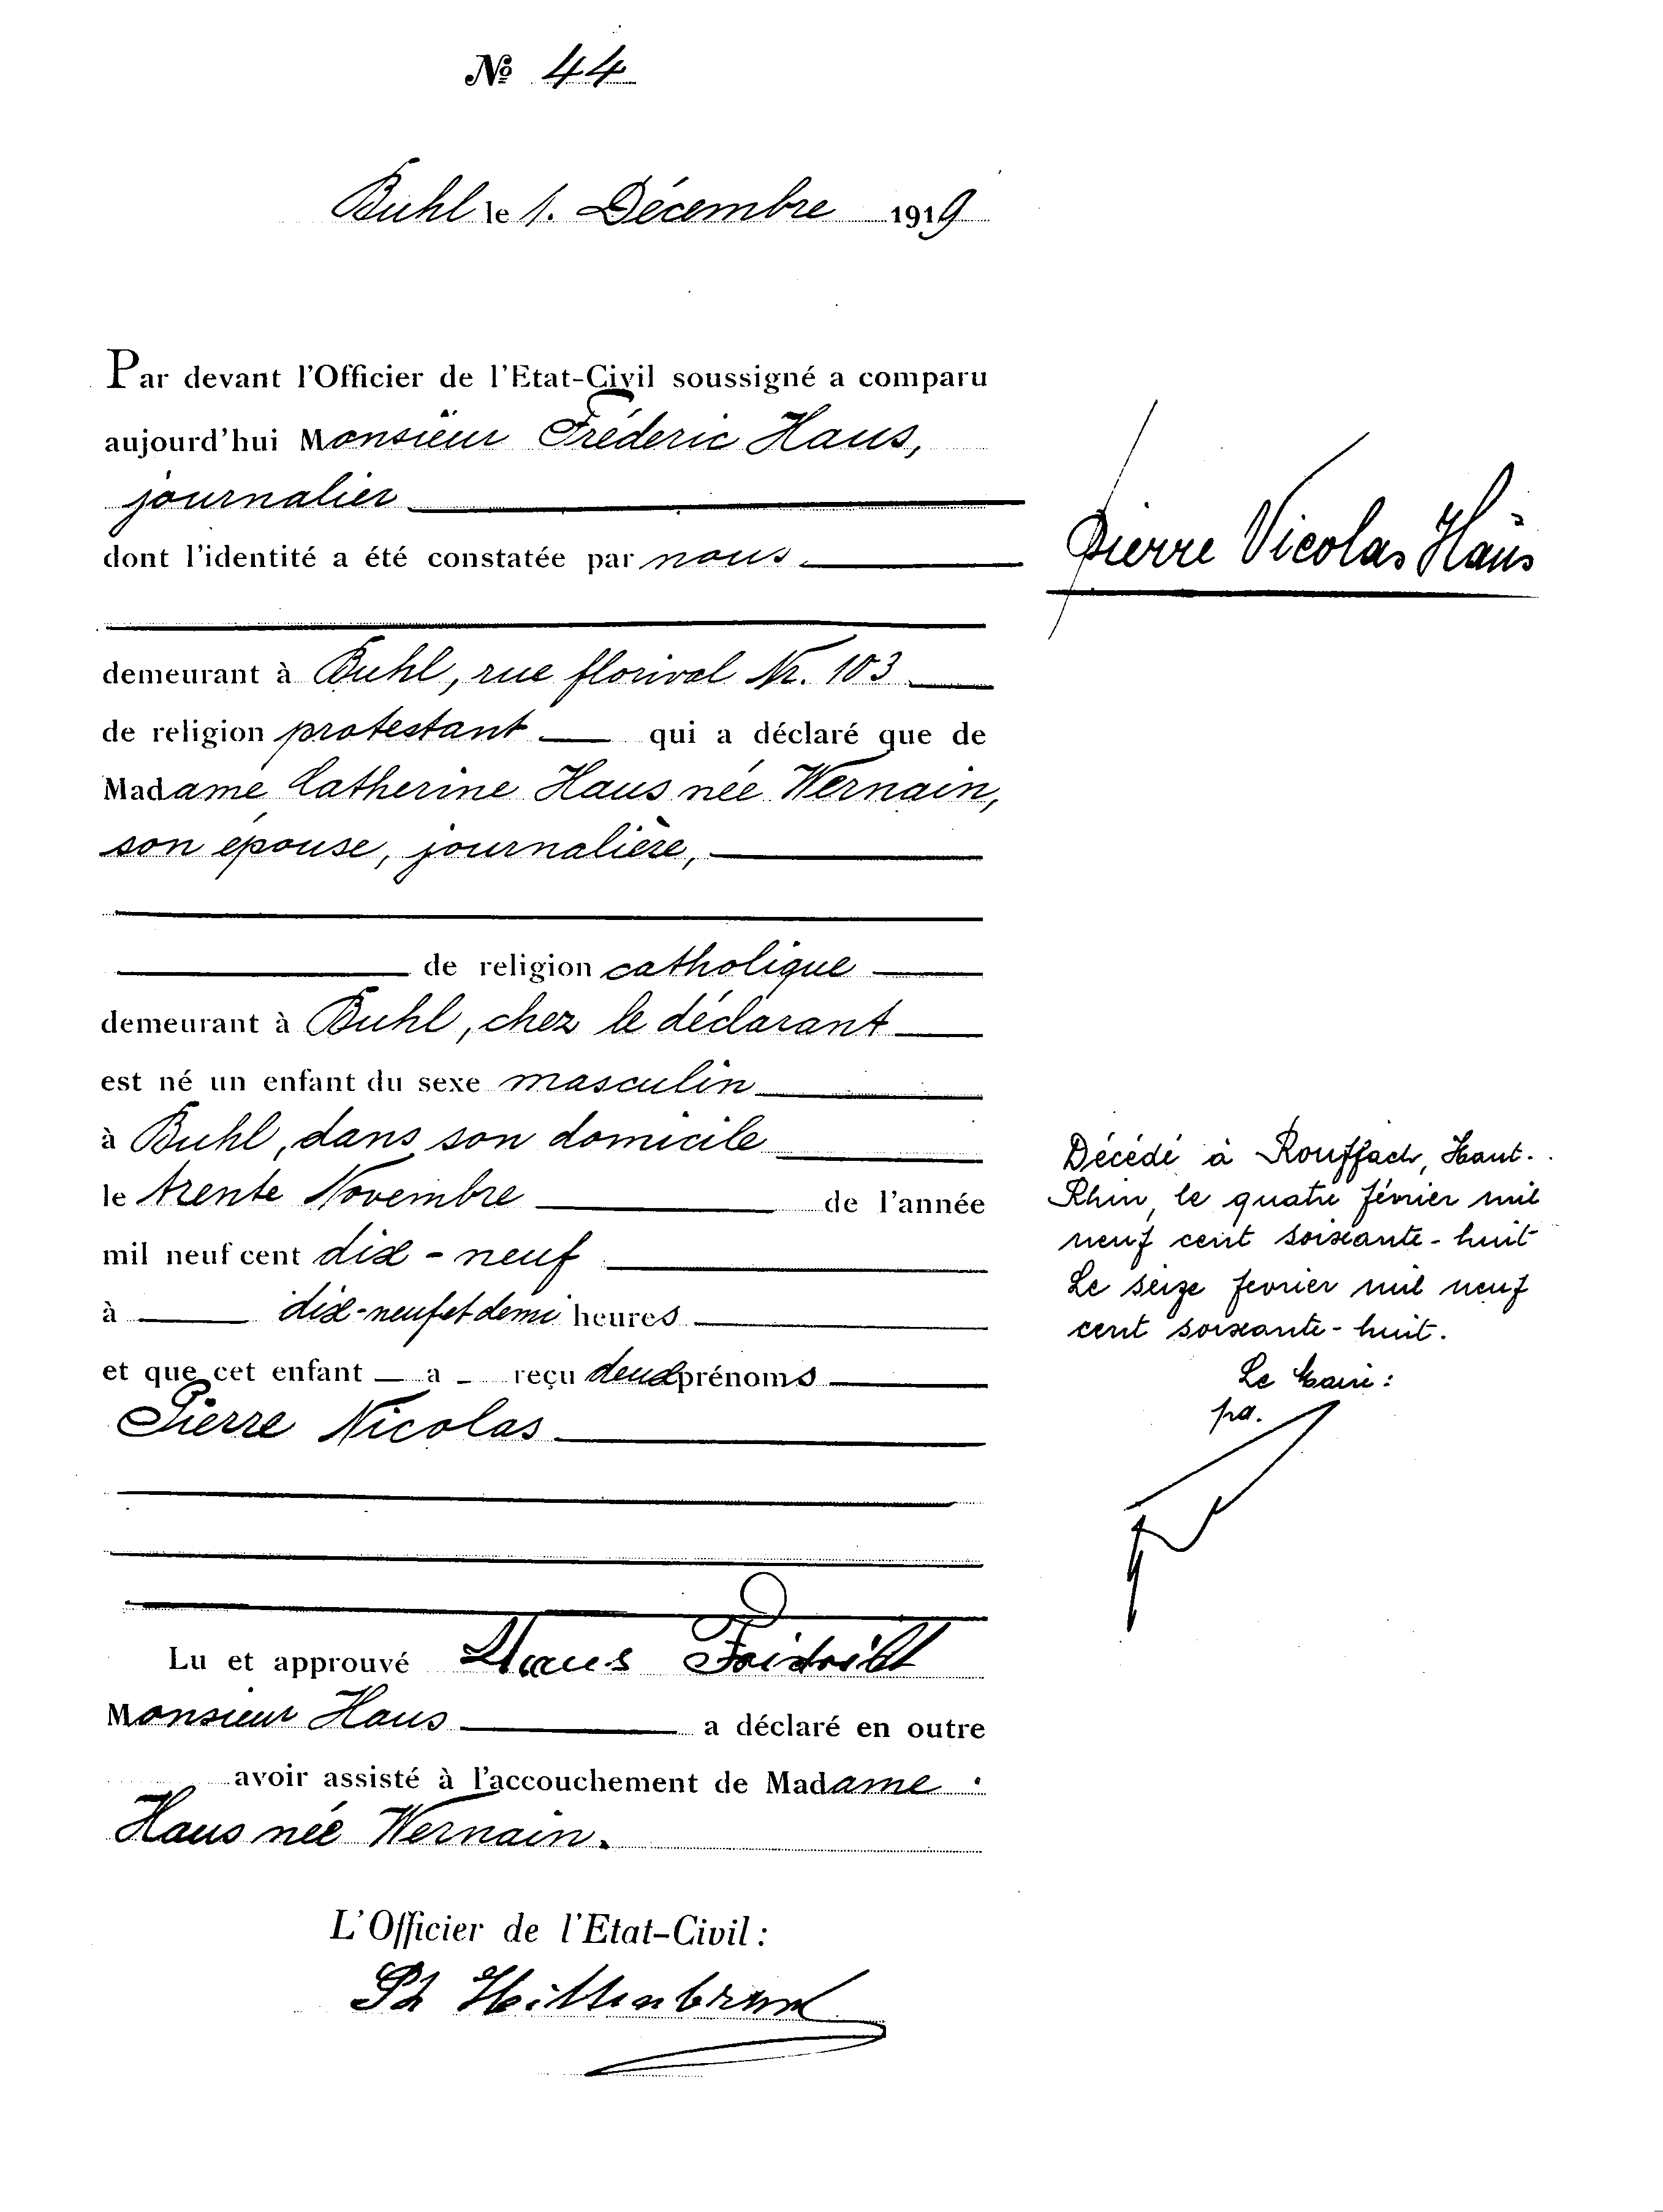 Nº 44
Buhl le 1. Décembre 1919
Par devant l'Officier de l'Etat-Civil soussigné a comparu
aujourd'hui Monsieur Fréderic Haus,
journalier
dont l'identité a été constatée par nous
demeurant à Buhl, rue florival Nr. 103
de religion protestant qui a déclaré que de
Madame Catherine Haus née Wernain,
son épouse, journalière,
de religion catholique
demeurant à Buhl, chez le déclarant
est né un enfant du sexe masculin
à Buhl, dans son domicile
le trente Novembre de l'année
mil neuf cent dix-neuf
à dix-neuf et demi heures
et que cet enfant a reçu deux prénoms
Pierre Nicolas
Lu et approuvé Haus Fridrich
Monsieur Haus a déclaré en outre
avoir assisté à l'accouchement de Madame
Haus née Wernain.
L'Officier de l'Etat-Civil:
Pierre Nicolas Haus
Décédé à Rouffach, Haut-
Rhin, le quatre février mil
neuf cent soixante-huit
Le seize fevrier mil neuf
cent soixante-huit.
Le Maire: